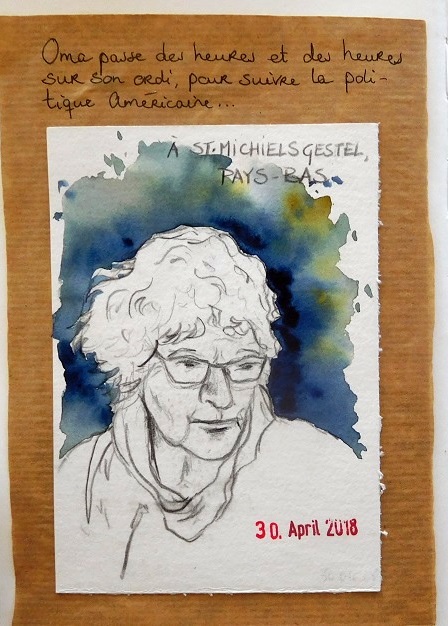 Oma passe des heures et des heures
sur son ordi, pour suivre la poli-
tique Américaine...
À ST. MICHIELSGESTEL,
PAYS-BAS.
30. April 2018